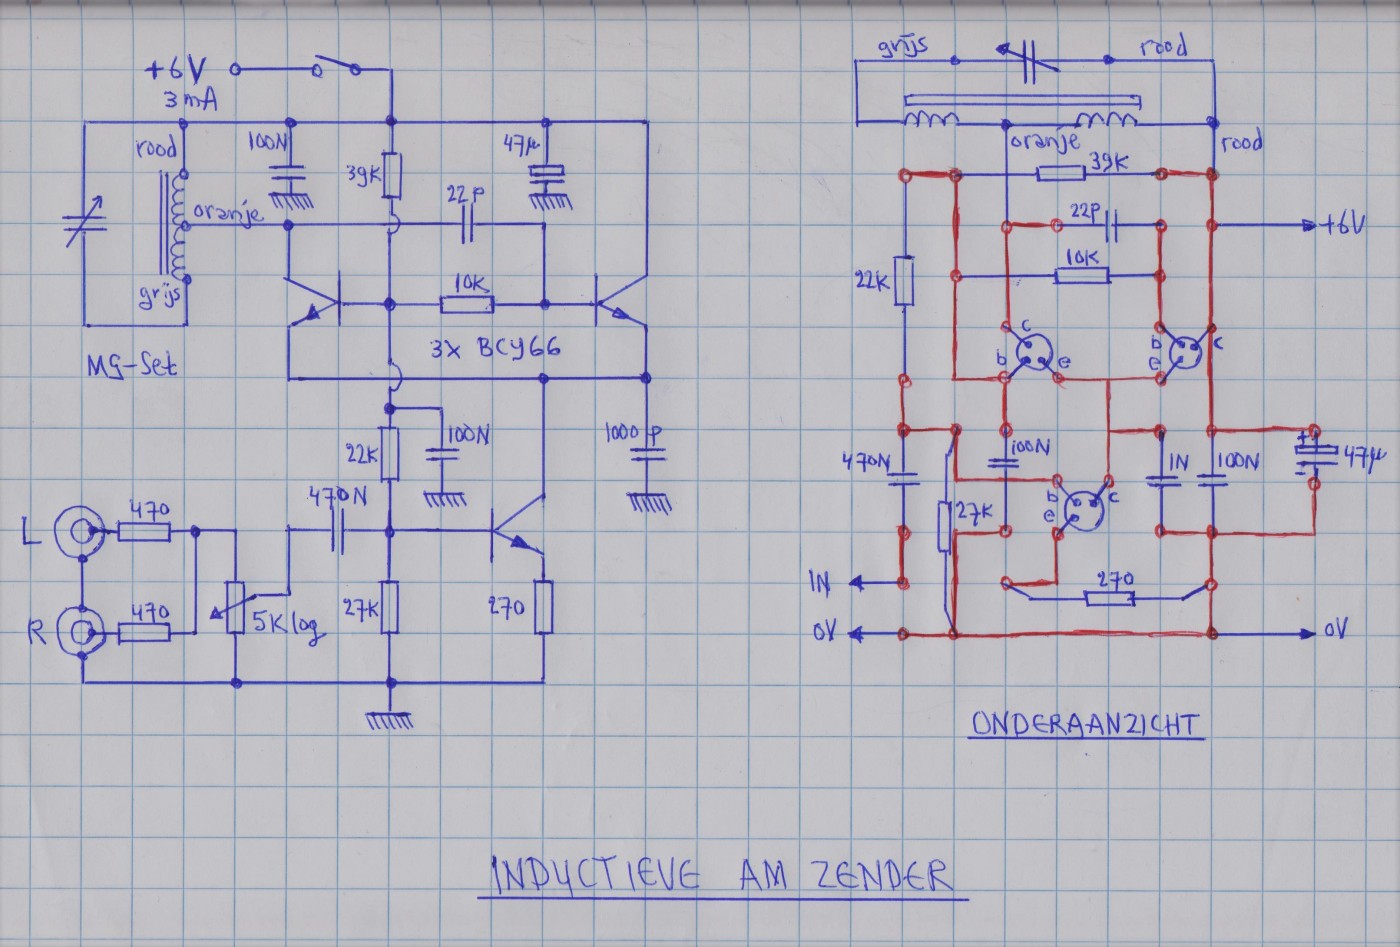 +6V
3mA
rood
100N
39K
47µ
22P
oranje
grijs
10K
3X BCY66
MG-Set
22K
100N
1000 P
470N
L
470
R
470
5K log
27K
270
grijs
rood
oranje
rood
39K
22P
+6V
22K
10K
c
b
e
b
c
e
470N
100N
1N
100N
+
47µ
27K
b
c
e
IN
270
0V
0V
ONDERAANZICHT
INDUCTIEVE AM ZENDER